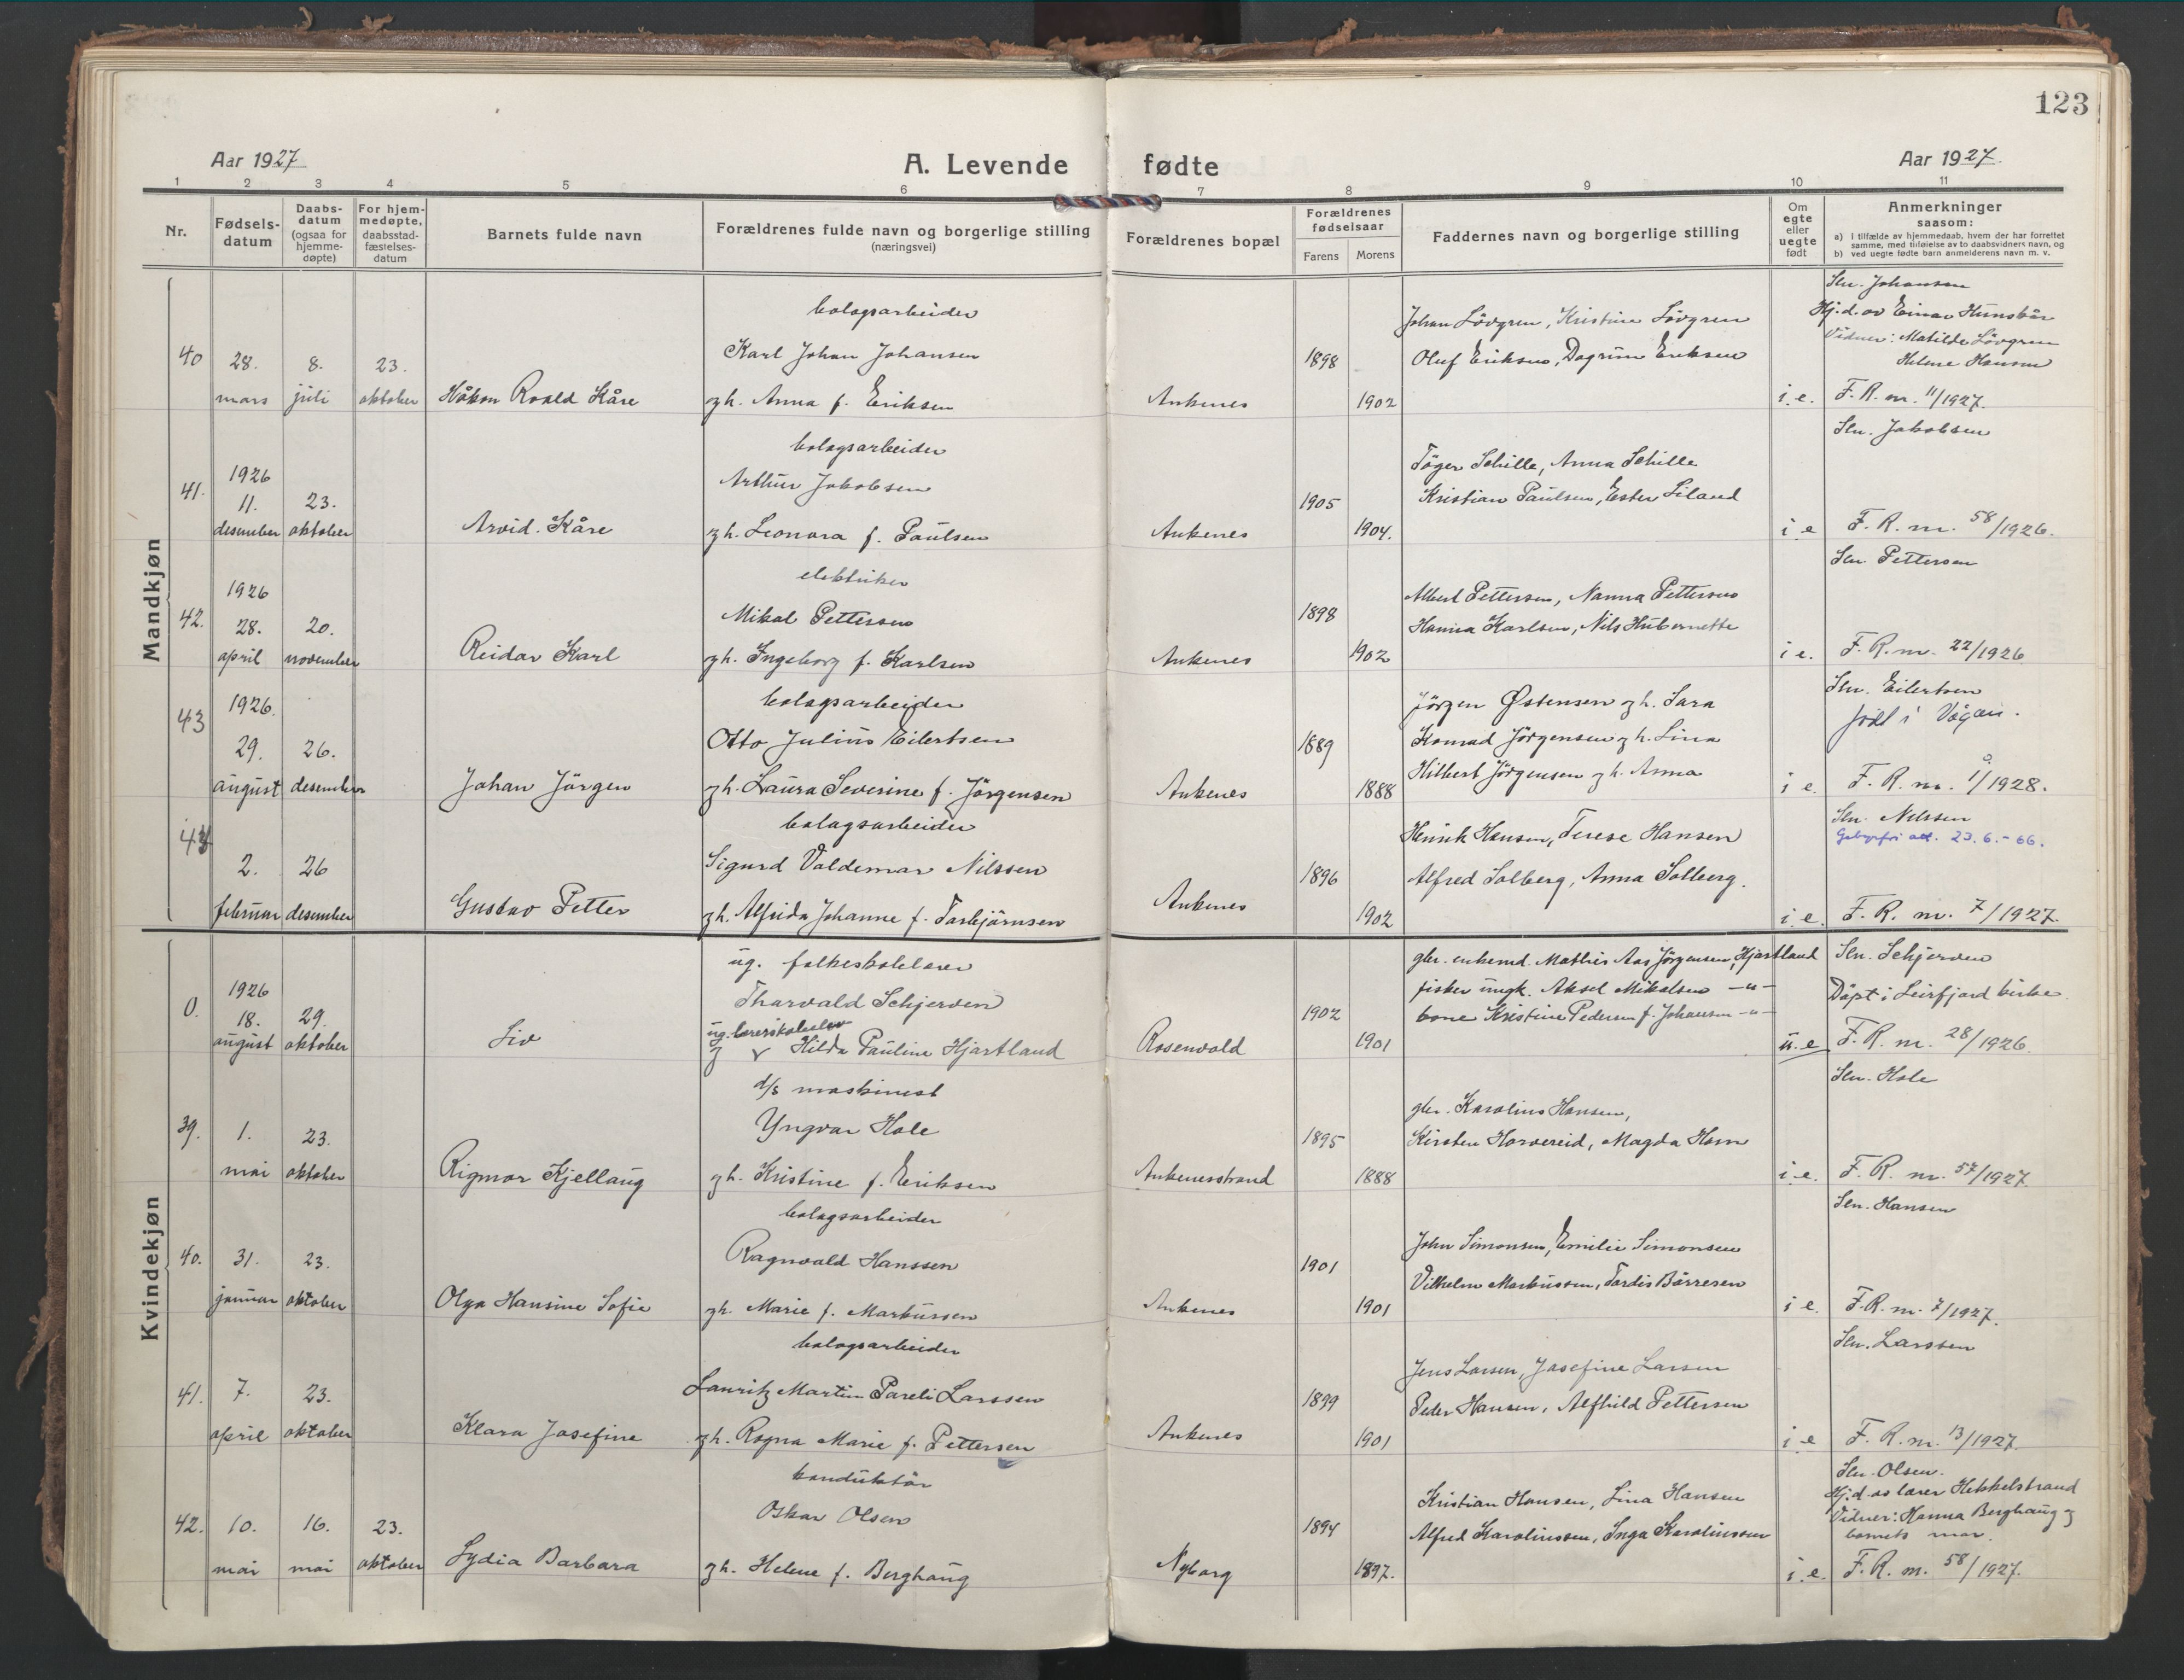 123
Aar 1927
A. Levende fødte
Aar 1927.
1 2 3 4 5 6 7 8 9 10 11
Nr.
Fødsels-
datum
Daabs-
datum
(ogsaa for
hjemme-
døpte)
For hjem-
medøpte,
daabsstad-
fæstelses-
datum
Barnets fulde navn
Forældrenes fulde navn og borgerlige stilling
(næringsvei)
Forældrenes bopæl
Forældrenes
fødselsaar
Farens Morens
Faddernes navn og borgerlige stilling
Om
egte
eller
uegte
født
Anmerkninger
saasom:
a) i tilfælde av hjemmedaab, hvem der har forrettet
samme, med tilføielse av to daabsvidners navn, og
b) ved uegte fødte barn anmelderens navn m. v.
Mandkjøn
40 28. mars
8. juli
23. oktober
Håkon Roald Kåre
bolagsarbeider
Karl Johan Johansen
og h. Anna f. Eriksen
Ankenes
1898
1902
Johan Lövgren, Kristine Lövgren
Oluf Eriksen, Dagrun Eriksen
i. e.
Sln. Johansen
Hj. d. av Einar Hunsbår
Vidner: Matilde Lövgren
Helene Hansen
F. R. nr. 11/1927.
41. 1926
11. desember
23. oktober
Arvid Kåre
bolagsarbeider
Arthur Jakobsen
og h. Leonora f. Paulsen
Ankenes
1905
1904.
Töger Schille, Anna Schille
Kristian Paulsen, Ester Liland
i. e
Sln. Jakobsen
F. R. nr. 58/1926.
42. 1926
28. april
20. november
Reidar Karl
elektriker
Mikal Pettersen
og h. Ingeborg f. Karlsen
Ankenes
1898
1902
Albert Pettersen, Nanna Pettersen
Hanna Karlsen, Nils Hubernette
i e.
Sln. Pettersen
F. R. nr. 22/1926
43 1926.
29. august
26. desember
Johan Jörgen
bolagsarbeider
Otto Julius Eilertsen
og h. Laura Severine f. Jörgensen
Ankenes
1889
1888
Jörgen Østensen og h. Sara
Konrad Jörgensen og h. Lina
Hilbert Jörgensen og h. Anna
i e.
Sln. Eilertsen
född i Vågan.
F. R. nr. 1/1928.
44
2. februar
26 desember
Gustav Petter
bolagsarbeider
Sigurd Valdemar Nilssen
og h. Alfrida Johanne f. Torbjörnsen
Ankenes
1896
1902
Henrik Hansen, Terese Hansen
Alfred Solberg, Anna Solberg.
i. e.
Sln. Nilssen
Gebyrfri att. 23.6.-66.
F. R. nr. 7/1927.
Kvindekjøn
0. 1926
18. august
29. oktober
Liv
ug. folkeskolelærer
Thorvald Schjerven
ug. lærerskoleelev
og Hilda Pauline Hjartland
Rosenvold
1902
1901
gbr. enkemd. Mathis Aas Jörgensen, Hjartland
fisker ungk. Aksel Mikalsen -"-
kone Kristine Pedersen f. Johansen -"-
u. e
Sln. Schjerven
Döpt i Leirfjord kirke
F. R. nr. 28/1926.
39. 1. mai
23. oktober
Rigmor Kjellaug
d/s maskinist
Yngvar Hole
og h. Kristine f. Eriksen
Ankenesstrand
1895
1888
gbr. Karolius Hansen,
Kirsten Horvereid, Magda Horn
i. e.
Sln. Hole
F. R. nr. 57/1927.
40. 31. januar
23. oktober
Olga Hansine Sofie
bolagsarbeider
Ragnvald Hanssen
og h. Marie f. Markussen
Ankenes
1901
1901
John Simonsen, Emilie Simonsen
Vilhelm Markussen, Tordis Börresen
i e.
Sln. Hansen
F. R. nr. 7/1927.
41. 7. april
23. oktober
Klara Josefine
bolagsarbeider
Lauritz Martin Pareli Larssen
og h. Ragna Marie f. Pettersen
Ankenes
1899
1901
Jens Larsen, Josefine Larsen
Peder Hansen, Alfhild Pettersen
i. e
Sln. Larssen
F. R. nr. 13/1927.
42. 10. mai
16. mai
23. oktober
Lydia Barbara
konduktör
Oskar Olsen
og h. Helene f. Berghaug
Nyborg
1894
1897.
Kristian Hansen, Lina Hansen
Alfred Karolinssen, Inga Karolinssen
i. e.
Sln. Olsen.
Hj. d. av lærer Hekkelstrand
Vidner: Hanna Berghaug og
barnets mor.
F. R. nr. 58/1927.